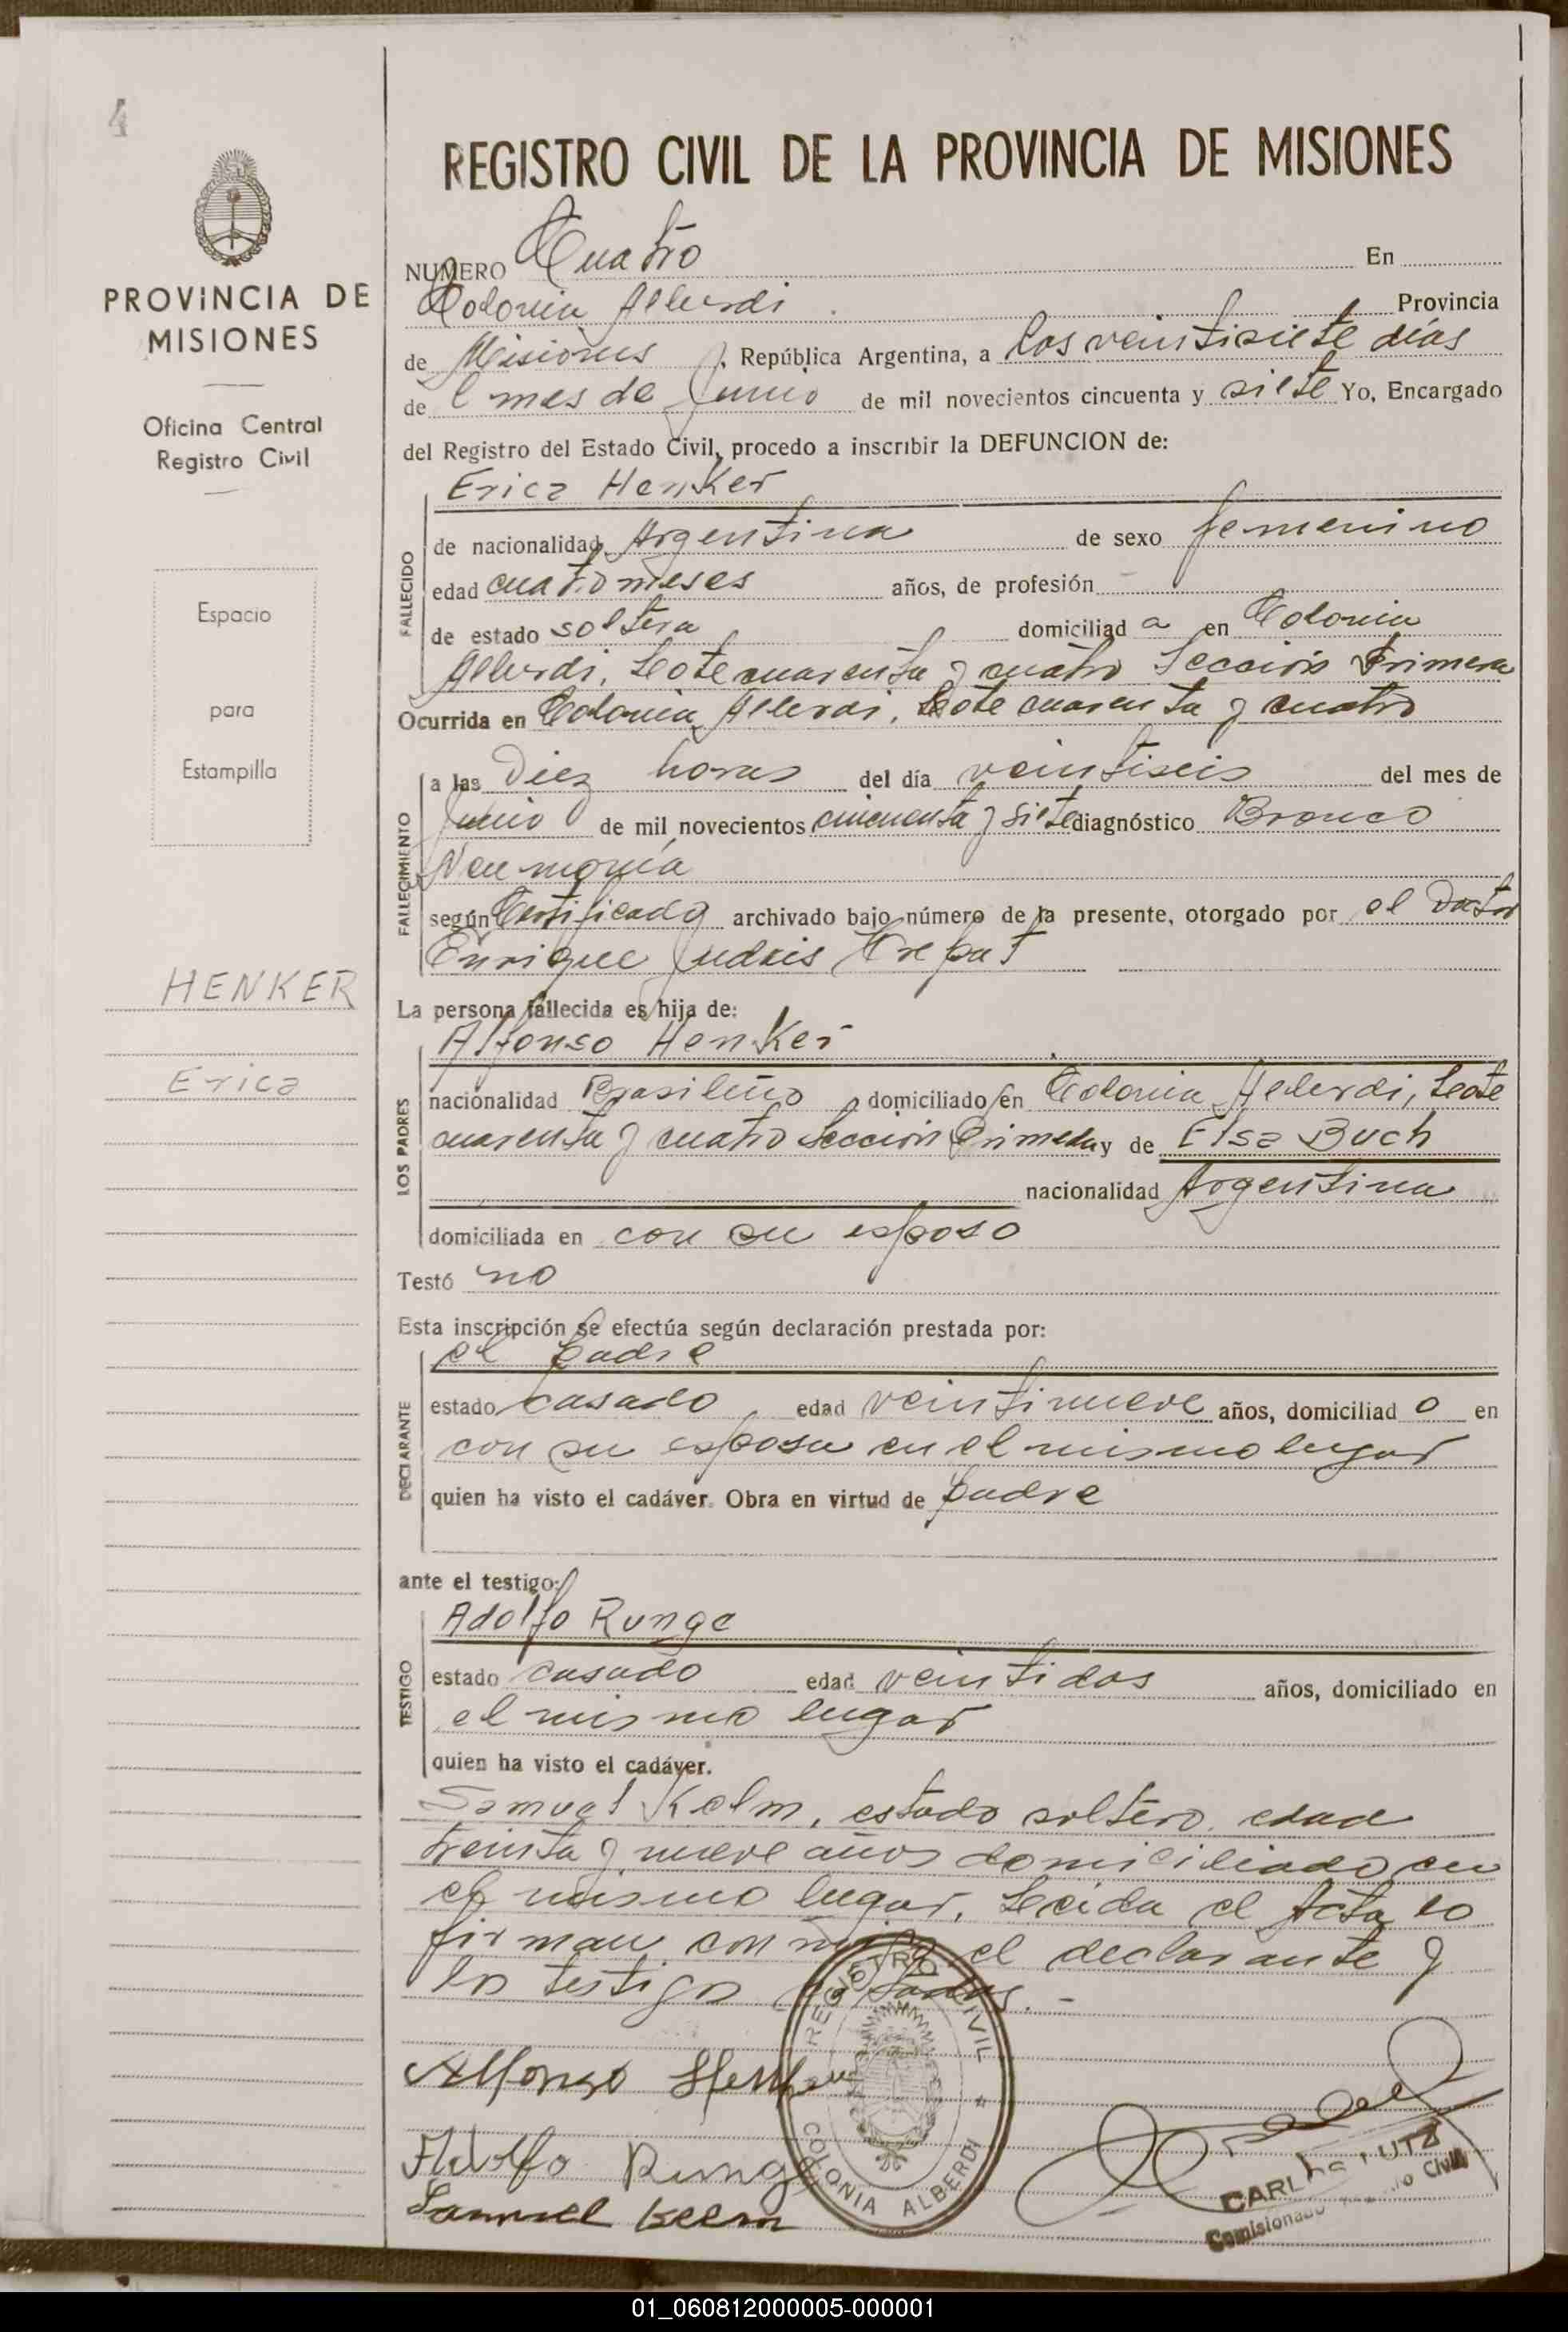 4
PROVINCIA DE
MISIONES
Oficina Central
Registro Civil
Espacio
para
Estampilla
HENKER
Erica
REGISTRO CIVIL DE LA PROVINCIA DE MISIONES
NUMERO Cuatro En
Colonia Alberdi Provincia
de Misiones, República Argentina, a los veintisiete días
de l mes de Junio de mil novecientos cincuenta y siete Yo, Encargado
del Registro del Estado Civil, procedo a inscribir la DEFUNCION de:
Erica Henker
FALLECIDO
de nacionalidad Argentina de sexo femenino
edad cuatro meses años, de profesión
de estado soltera domiciliad a en Colonia
Alberdi, Lote cuarenta y cuatro Sección Primera
Ocurrida en Colonia Alberdi, Lote cuarenta y cuatro
FALLECIMIENTO
a las Diez horas del día veintiseis del mes de
Junio de mil novecientos cincuenta y siete diagnóstico Bronco
Neumonía
según Certificado archivado bajo número de la presente, otorgado por el Doctor
Enrique Crepat
La persona fallecida es hija de:
Alfonso Henker
LOS PADRES
nacionalidad Brasileño domiciliado en Colonia Alberdi, Lote
cuarenta y cuatro Sección Primera y de Elsa Buch
nacionalidad Argentina
domiciliada en con su esposo
Testó no
Esta inscripción se efectúa según declaración prestada por:
el padre
DECLARANTE
estado casado, edad veintinueve años, domiciliad o en
con su esposa en el mismo lugar
quien ha visto el cadáver. Obra en virtud de padre
ante el testigo:
Adolfo Runge
TESTIGO
estado casado edad veintidos años, domiciliado en
el mismo lugar
quien ha visto el cadáver.
Samuel Kelm, estado soltero, edad
treinta y nueve años domiciliado en
el mismo lugar. Leida el Acta lo
firman conmigo el declarante y
los testigos
Alfonso Henker
Adolfo Runge
Samuel Kelm
REGISTRO CIVIL
COLONIA ALBERDI
CARLOS LUTZ
Comisionado Civil
01_060812000005-000001